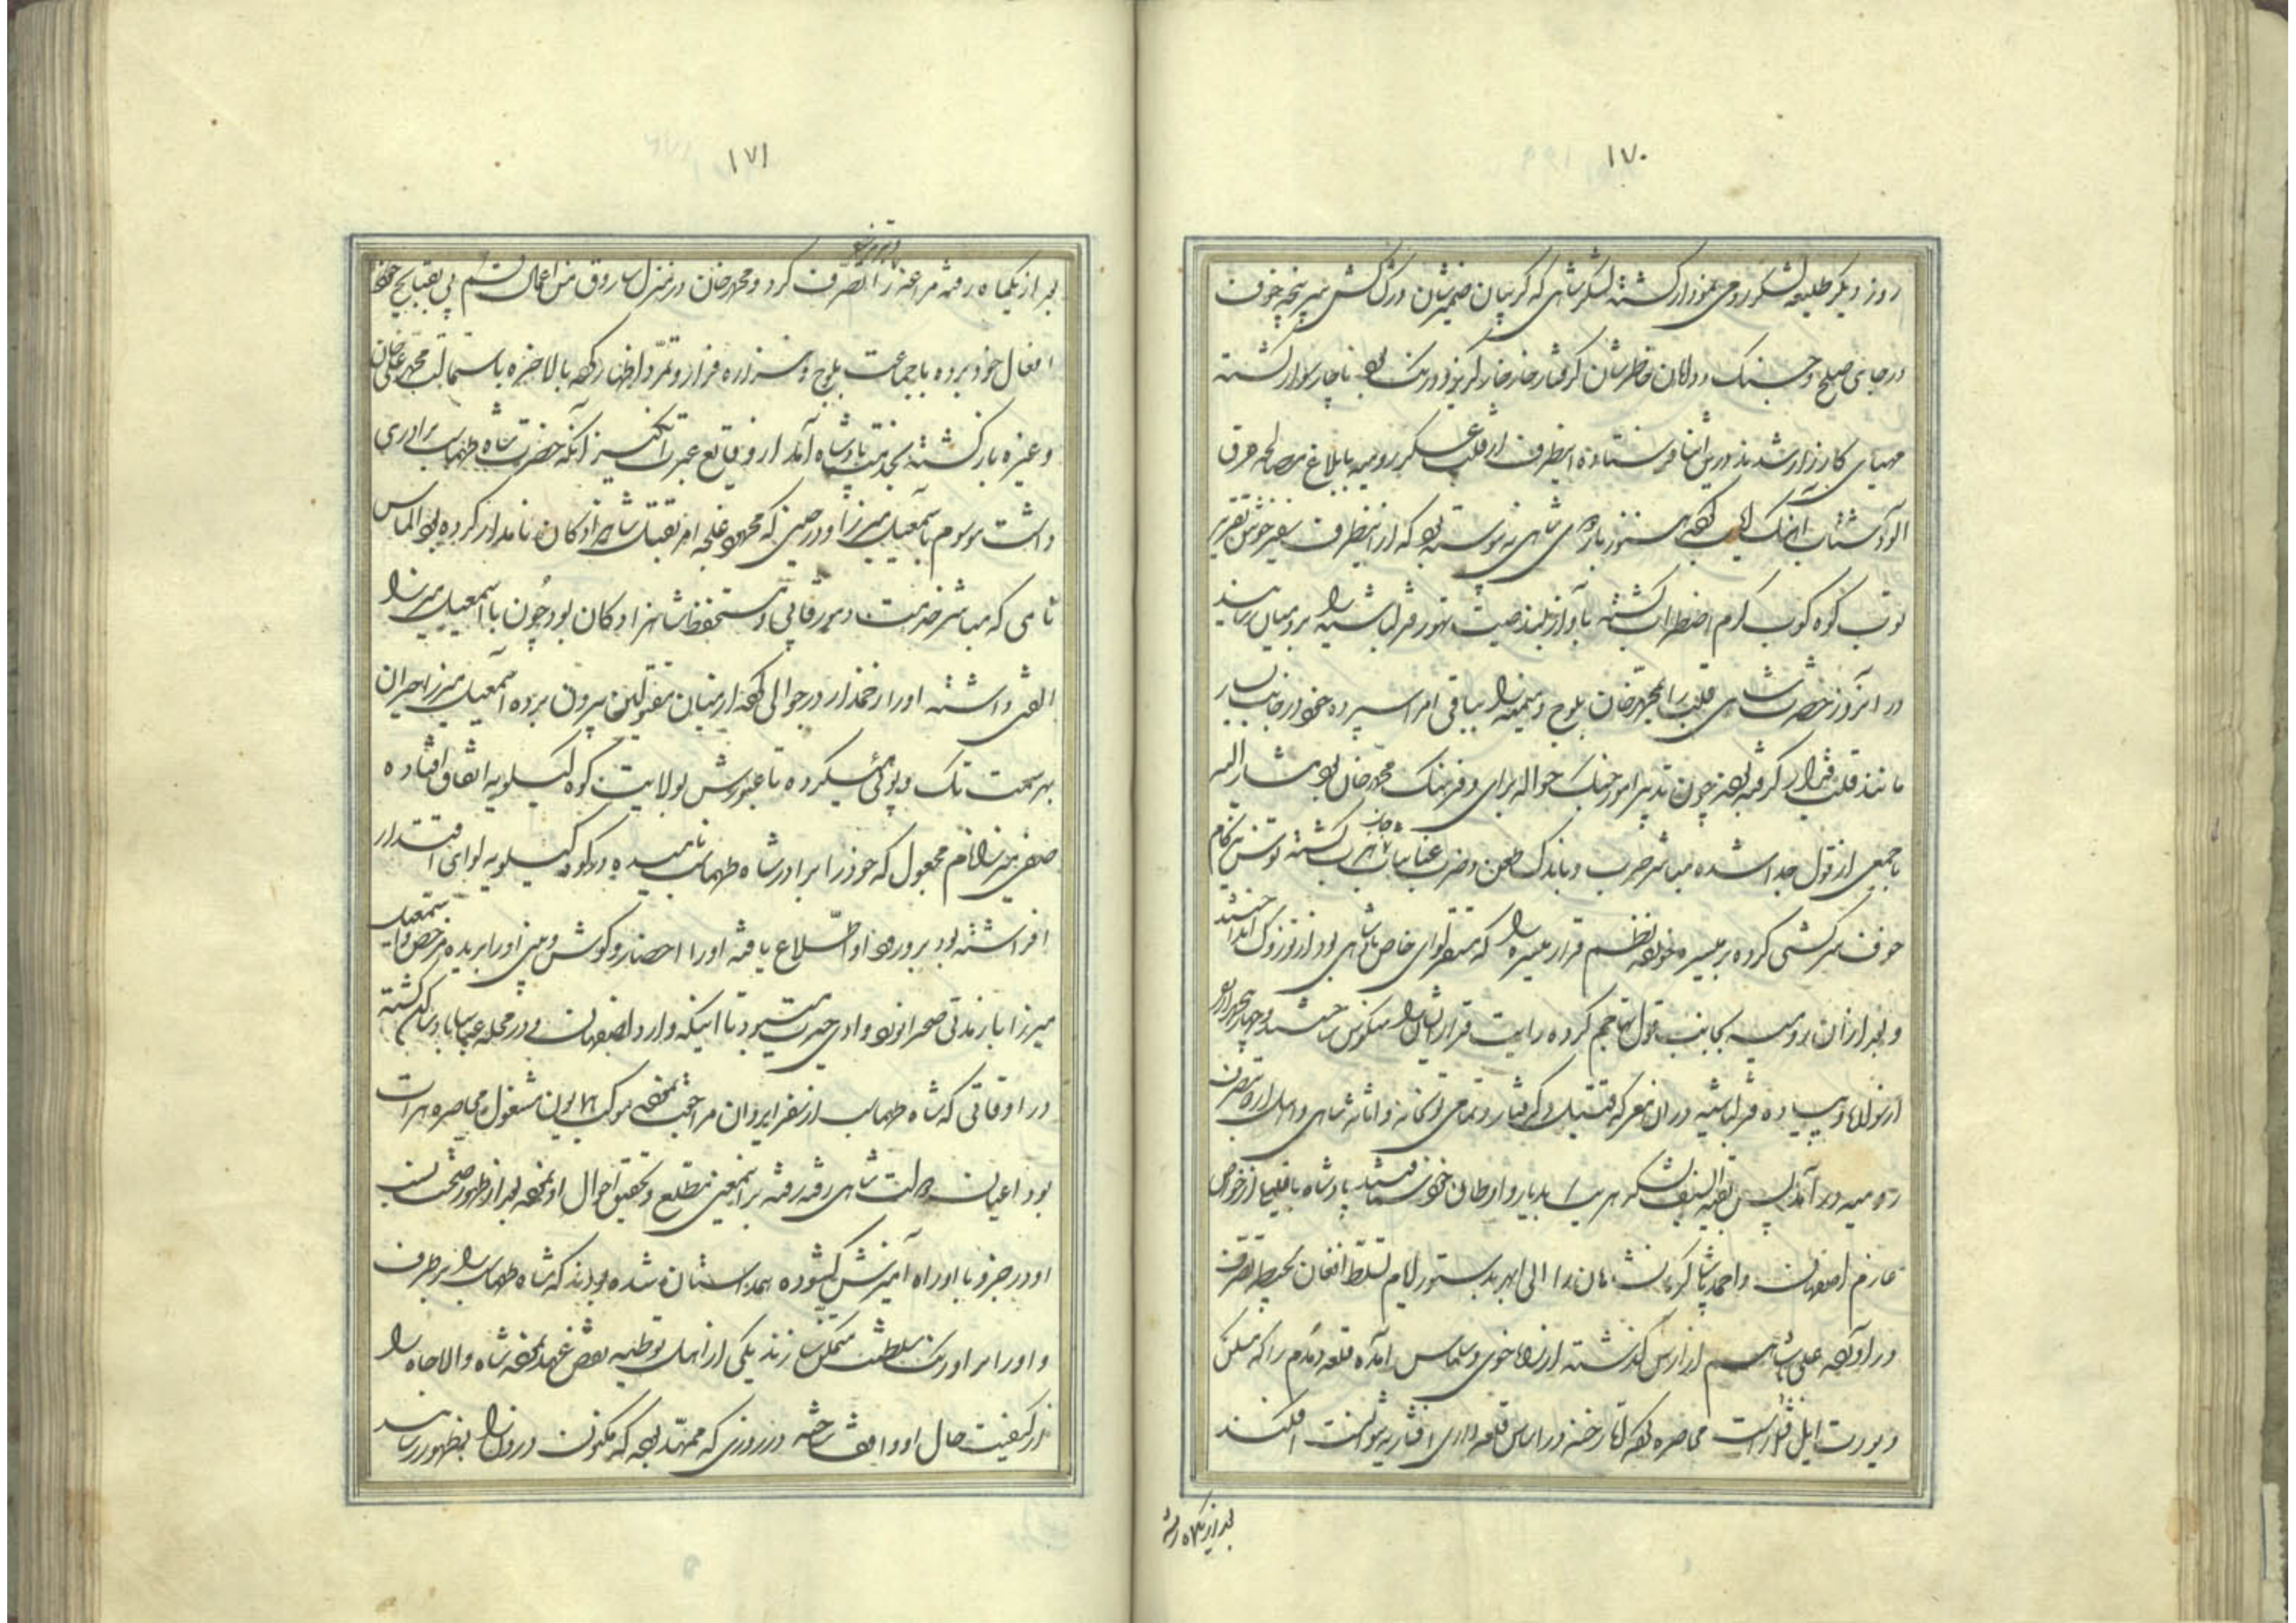 ۱۷۰
روز دیگر طلیعه لشکر رومی نمودار گشته لشکر شاهی که گریبان ضمیرشان در کشاکش سرپنجه خوف
درجای صلح و جنگ و دامان خاطرشان گرفتار خارخار گریز و درنگ بود ناچار سوار گشته
مهیای کارزار شدند درین اثنا فرستاده اینطرف از قلب عسکر رومیه بابلاغ مصالحه عرق
آلود شتاب هنوز شاهی نه پیوسته بود که از آنطرف سفیر خوش تقریر
توپ کوه کوب گرم اضطراب گشته بآواز بلند صیت تهور قزلباشیه را برومیان رسانید
در آنروز حضرت شاهی قلب را بمحمدخان بلوچ و میمنه را بباقی امرا سپرده خود در جانب یسار
مانند قلب قرار گرفته بودند چون تدبیر امور جنگ حواله برای و فرهنگ محمدخان بود مشارالیه
با جمعی از قول جدا شده مباشر حرب و باندک طعن و ضرب عنان تاب گشته توسن تیزگام
خوف سرکشی کرده بر میسره خورده نظم قرار میسره را که مقر لوای خاص شاهی بود از توزوک انداختند
و بعد از آن رومیه بجانب قول تهاجم کرده رایت قرار ایشان را منکوس ساختند و چهار پنجهزار نفر
از سواره و پیاده قزلباشیه در آن معرکه قتیل و گرفتار و تمامی توپخانه و اثاثه شاهی و اهل اردو بتصرف
رومیه درآمد پس بقیة السیف لشکر هر یک بدیار و اوطان خود شتافتند پادشاه با قلیلی از خواص
عازم اصفهان و احمد پاشا کرمانشاهان را الی ابهر بدستور ایام تسلط افغان بحیطه تصرف
درآورده علی پاشا هم از ارس گذشته از راه خوی و سلماس آمده قلعه دمدم را که مسکن
و یورت ایل افشار است محاصره کرده رخنه در اساس قلعه داری افشاریه نتوانست افکند
بعد از یکماه رفته
۱۷۱
بعد از یکماه رفته مراغه را تصرف کرد و محمدخان در منزل ساروق من اعمال قم پی بقبایح
افعال خود برده با جماعت بلوچ و هزاره فرار و تمرد اظهار کرده بالاخره باستمالت محمدعلی خان
و غیره بازگشته بخدمت پادشاه آمد از وقایع عبرت انگیز آنکه حضرت شاه طهماسب برادری
داشت موسوم باسمعیل میرزا و در حینی که محمود غلجه امر بقتل شاهزادکان نامدار کرده بود الماس
نامی که مباشر خدمت و مستحفظ شاهزادکان بود چون با اسمعیل میرزا
الفتی داشته او را زخمدار در جوالی کرده از میان مقتولین بیرون برده اسمعیل میرزا حیران
بهر سمت تک و پوئی میکرده تا عبورش بولایت کوه کیلویه اتفاق افتاده
صفی میرزا نام مجعول که خود را برادر شاه طهماسب نامیده در کوه کیلویه لوای اقتدار
افراشته بود بر ورود او اطلاع یافته او را احضار و گوش و بینی او را بریده مرخص و اسمعیل
میرزا باز مدتی صحرانورد وادی حیرت میبود تا اینکه وارد اصفهان و در محله عباس آباد ساکن گشته
در اوقاتی که شاه طهماسب از سفر ایروان مراجعت نموده موکب همایون مشغول محاصره هرات
بود اعیان دولت شاهی رفته رفته بر اینمعنی مطلع و تحقیق احوال او نموده بعد از ظهور صحت نسب
او در جزو با او راه آمیزش گشوده همداستان شده بودند که شاه طهماسب را برطرف
و او را بر اورنگ سلطنت متمکن سازند یکی از اهل توطیه نقض عهد نموده شاه والاجاه را
از کیفیت حال او واقف ساخته در روزی که ممهد بود که مکنون درون را بظهور رسانند